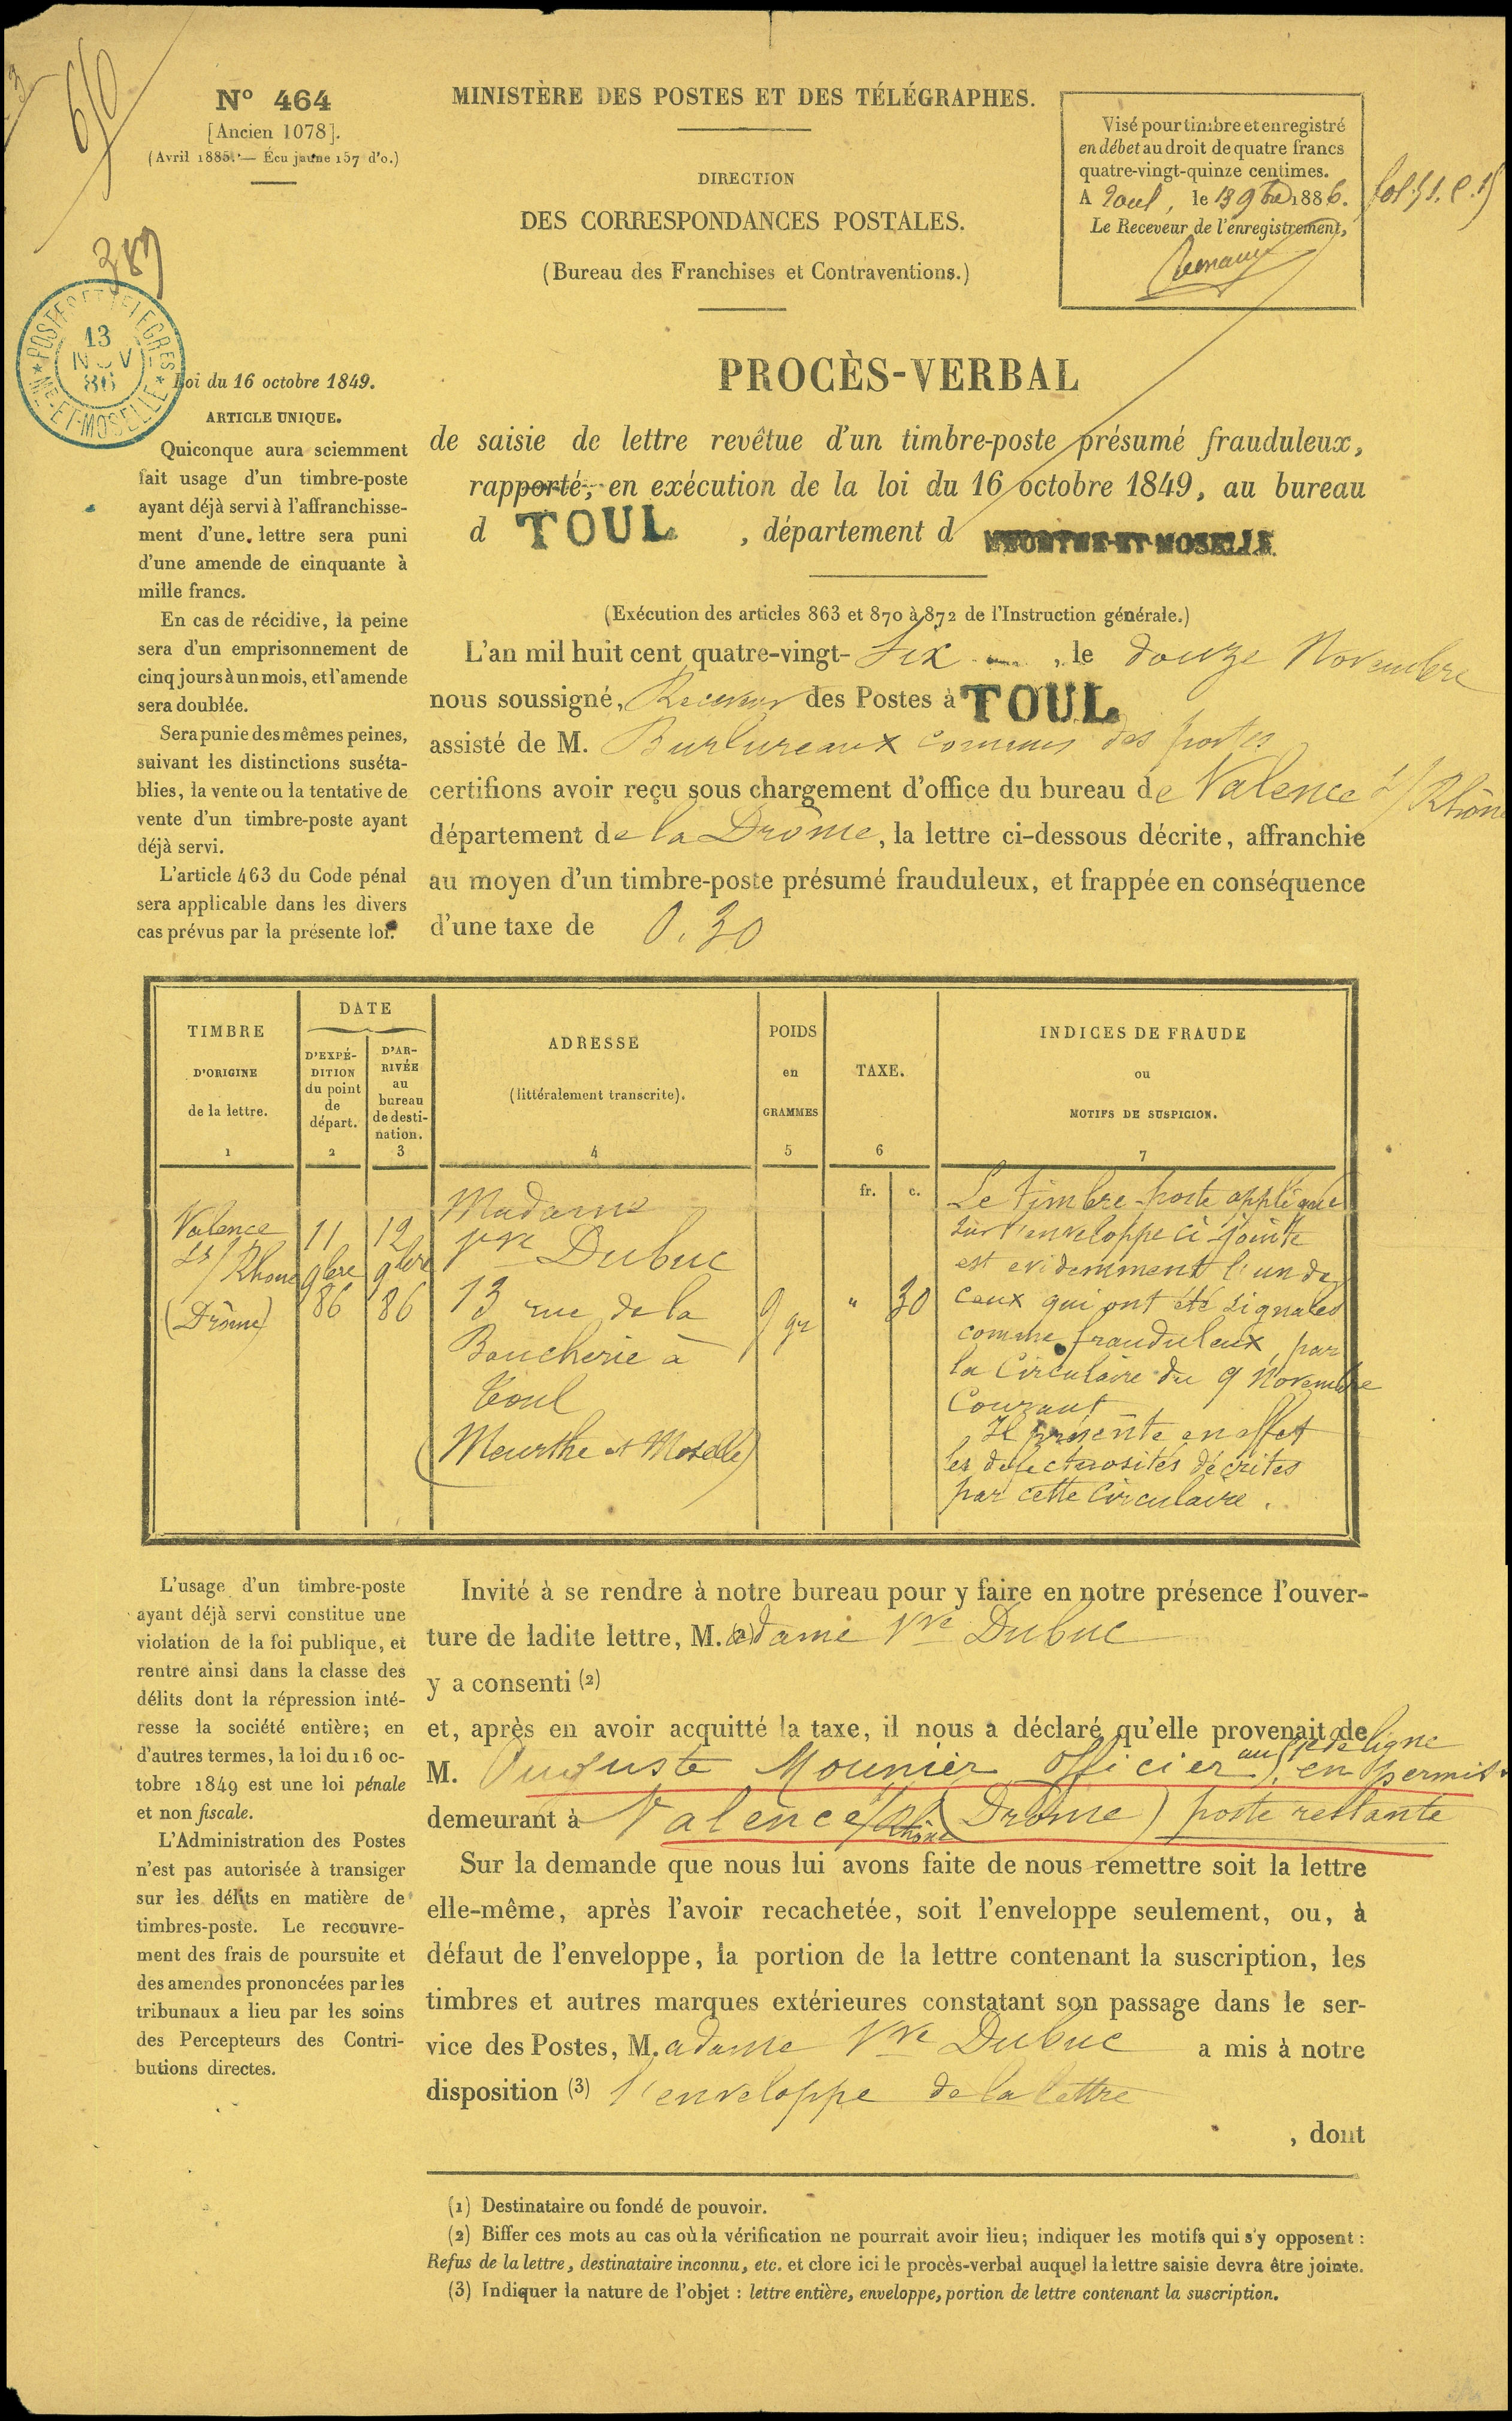 Nº 464
[Ancien 1078].
(Avril 1885. — Écu jaune 157 d'o.)
389
MINISTÈRE DES POSTES ET DES TÉLÉGRAPHES.
DIRECTION
DES CORRESPONDANCES POSTALES.
(Bureau des Franchises et Contraventions.)
Visé pour timbre et enregistré
en débet au droit de quatre francs
quatre-vingt-quinze centimes.
A Toul, le 13 9bre 1886.
Le Receveur de l'enregistrement,
POSTES ET TÉLÉGRES
13
NOV
86
ME-ET-MOSELLE
Loi du 16 octobre 1849.
ARTICLE UNIQUE.
Quiconque aura sciemment
fait usage d'un timbre-poste
ayant déjà servi à l'affranchisse-
ment d'une lettre sera puni
d'une amende de cinquante à
mille francs.
En cas de récidive, la peine
sera d'un emprisonnement de
cinq jours à un mois, et l'amende
sera doublée.
Sera punie des mêmes peines,
suivant les distinctions suséta-
blies, la vente ou la tentative de
vente d'un timbre-poste ayant
déjà servi.
L'article 463 du Code pénal
sera applicable dans les divers
cas prévus par la présente loi.
PROCÈS-VERBAL
de saisie de lettre revêtue d'un timbre-poste présumé frauduleux,
rapporté, en exécution de la loi du 16 octobre 1849, au bureau
d TOUL , département d MEURTHE-ET-MOSELLE
(Exécution des articles 863 et 870 à 872 de l'Instruction générale.)
L'an mil huit cent quatre-vingt- Six , le douze Novembre
nous soussigné, Receveur des Postes à TOUL
assisté de M. Burlureaux commis des postes
certifions avoir reçu sous chargement d'office du bureau de Valence s/ Rhône
département de la Drôme, la lettre ci-dessous décrite, affranchie
au moyen d'un timbre-poste présumé frauduleux, et frappée en conséquence
d'une taxe de 0.30
TIMBRE
D'ORIGINE
de la lettre.
1
DATE
D'EXPÉ-
DITION
du point
de
départ.
2
D'AR-
RIVÉE
au
bureau
de desti-
nation.
3
ADRESSE
(littéralement transcrite).
4
POIDS
en
GRAMMES
5
TAXE.
6
fr. c.
INDICES DE FRAUDE
ou
MOTIFS DE SUSPICION.
7
Valence
s/ Rhone
(Drôme)
11
9bre
86
12
9bre
86
Madame
Vve Dubuc
13 rue de la
Boucherie à
Toul
(Meurthe et Moselle)
9 gr
" 30
Le timbre-poste appliqué
sur l'enveloppe ci-jointe
est evidemment l'un de
ceux qui ont été signalés
comme frauduleux, par
la Circulaire du 9 Novembre
Courant
Il présente en effet
les defectuosités décrites
par cette Circulaire.
L'usage d'un timbre-poste
ayant déjà servi constitue une
violation de la foi publique, et
rentre ainsi dans la classe des
délits dont la répression inté-
resse la société entière; en
d'autres termes, la loi du 16 oc-
tobre 1849 est une loi pénale
et non fiscale.
L'Administration des Postes
n'est pas autorisée à transiger
sur les délits en matière de
timbres-poste. Le recouvre-
ment des frais de poursuite et
des amendes prononcées par les
tribunaux a lieu par les soins
des Percepteurs des Contri-
butions directes.
Invité à se rendre à notre bureau pour y faire en notre présence l'ouver-
ture de ladite lettre, M. adame Vve Dubuc
y a consenti (2)
et, après en avoir acquitté la taxe, il nous a déclaré qu'elle provenait de
M. Auguste Mounier officier au de ligne en permis.
demeurant à Valence s/ Rhône (Drôme) poste restante
Sur la demande que nous lui avons faite de nous remettre soit la lettre
elle-même, après l'avoir recachetée, soit l'enveloppe seulement, ou, à
défaut de l'enveloppe, la portion de la lettre contenant la suscription, les
timbres et autres marques extérieures constatant son passage dans le ser-
vice des Postes, M. adame Vve Dubuc a mis à notre
disposition (3) l'enveloppe de la lettre
, dont
(1) Destinataire ou fondé de pouvoir.
(2) Biffer ces mots au cas où la vérification ne pourrait avoir lieu; indiquer les motifs qui s'y opposent :
Refus de la lettre, destinataire inconnu, etc. et clore ici le procès-verbal auquel la lettre saisie devra être jointe.
(3) Indiquer la nature de l'objet : lettre entière, enveloppe, portion de lettre contenant la suscription.